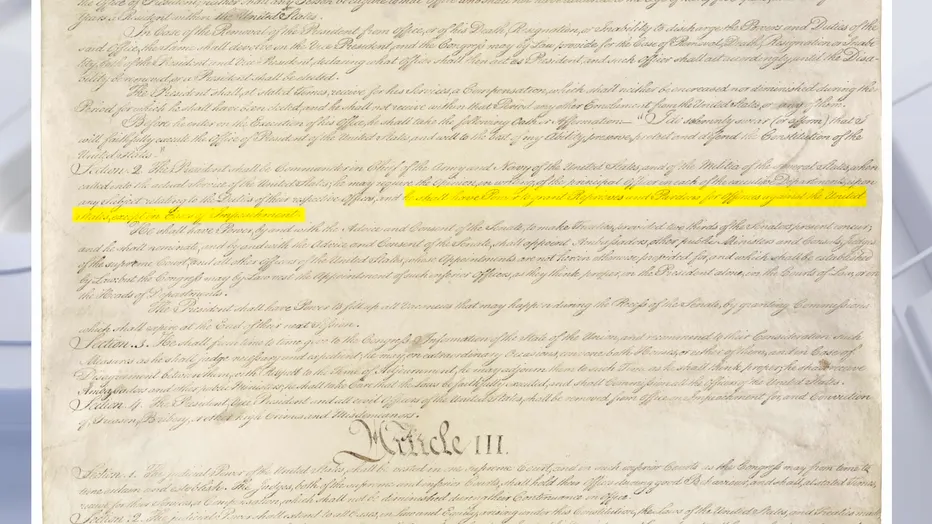 the Office of President, neither shall any Person be eligible to that Office who shall not have attained to the Age of thirty five Years, and been fourteen
Years a Resident within the United States.
In Case of the Removal of the President from Office, or of his Death, Resignation, or Inability to discharge the Powers and Duties of the
said Office, the Same shall devolve on the Vice President, and the Congress may by Law, provide for the Case of Removal, Death, Resignation or Inabi-
lity, both of the President and Vice President, declaring what Officer shall then act as President, and such Officer shall act accordingly, until the Disa-
bility be removed, or a President shall be elected.
The President shall, at stated Times, receive for his Services, a Compensation, which shall neither be encreased nor diminished during the
Period for which he shall have been elected, and he shall not receive within that Period any other Emolument from the United States, or any of them.
Before he enter on the Execution of his Office, he shall take the following Oath or Affirmation: "I do solemnly swear (or affirm) that I
will faithfully execute the Office of President of the United States, and will to the best of my Ability, preserve, protect and defend the Constitution of the
United States."
Section. 2. The President shall be Commander in Chief of the Army and Navy of the United States, and of the Militia of the several States, when
called into the actual Service of the United States; he may require the Opinion, in writing, of the principal Officer in each of the executive Departments, upon
any Subject relating to the Duties of their respective Offices, and he shall have Power to grant Reprieves and Pardons for Offences against the United
States, except in Cases of Impeachment.
He shall have Power, by and with the Advice and Consent of the Senate, to make Treaties, provided two thirds of the Senators present concur;
and he shall nominate, and by and with the Advice and Consent of the Senate, shall appoint Ambassadors, other public Ministers and Consuls, Judges
of the supreme Court, and all other Officers of the United States, whose Appointments are not herein otherwise provided for, and which shall be established
by Law: but the Congress may by Law vest the Appointment of such inferior Officers, as they think proper, in the President alone, in the Courts of Law, or in
the Heads of Departments.
The President shall have Power to fill up all Vacancies that may happen during the Recess of the Senate, by granting Commissions
which shall expire at the End of their next Session.
Section. 3. He shall from time to time give to the Congress Information of the State of the Union, and recommend to their Consideration such
Measures as he shall judge necessary and expedient; he may, on extraordinary Occasions, convene both Houses, or either of them, and in Case of
Disagreement between them, with Respect to the Time of Adjournment, he may adjourn them to such Time as he shall think proper; he shall receive
Ambassadors and other public Ministers; he shall take Care that the Laws be faithfully executed, and shall Commission all the Officers of the United States.
Section. 4. The President, Vice President and all civil Officers of the United States, shall be removed from Office on Impeachment for, and Conviction
of, Treason, Bribery, or other high Crimes and Misdemeanors.
Article III.
Section. 1. The judicial Power of the United States, shall be vested in one supreme Court, and in such inferior Courts as the Congress may from time to
time ordain and establish. The Judges, both of the supreme and inferior Courts, shall hold their Offices during good Behaviour, and shall, at stated Times,
receive for their Services, a Compensation, which shall not be diminished during their Continuance in Office.
Section. 2. The judicial Power shall extend to all Cases, in Law and Equity, arising under this Constitution, the Laws of the United States, and Treaties made